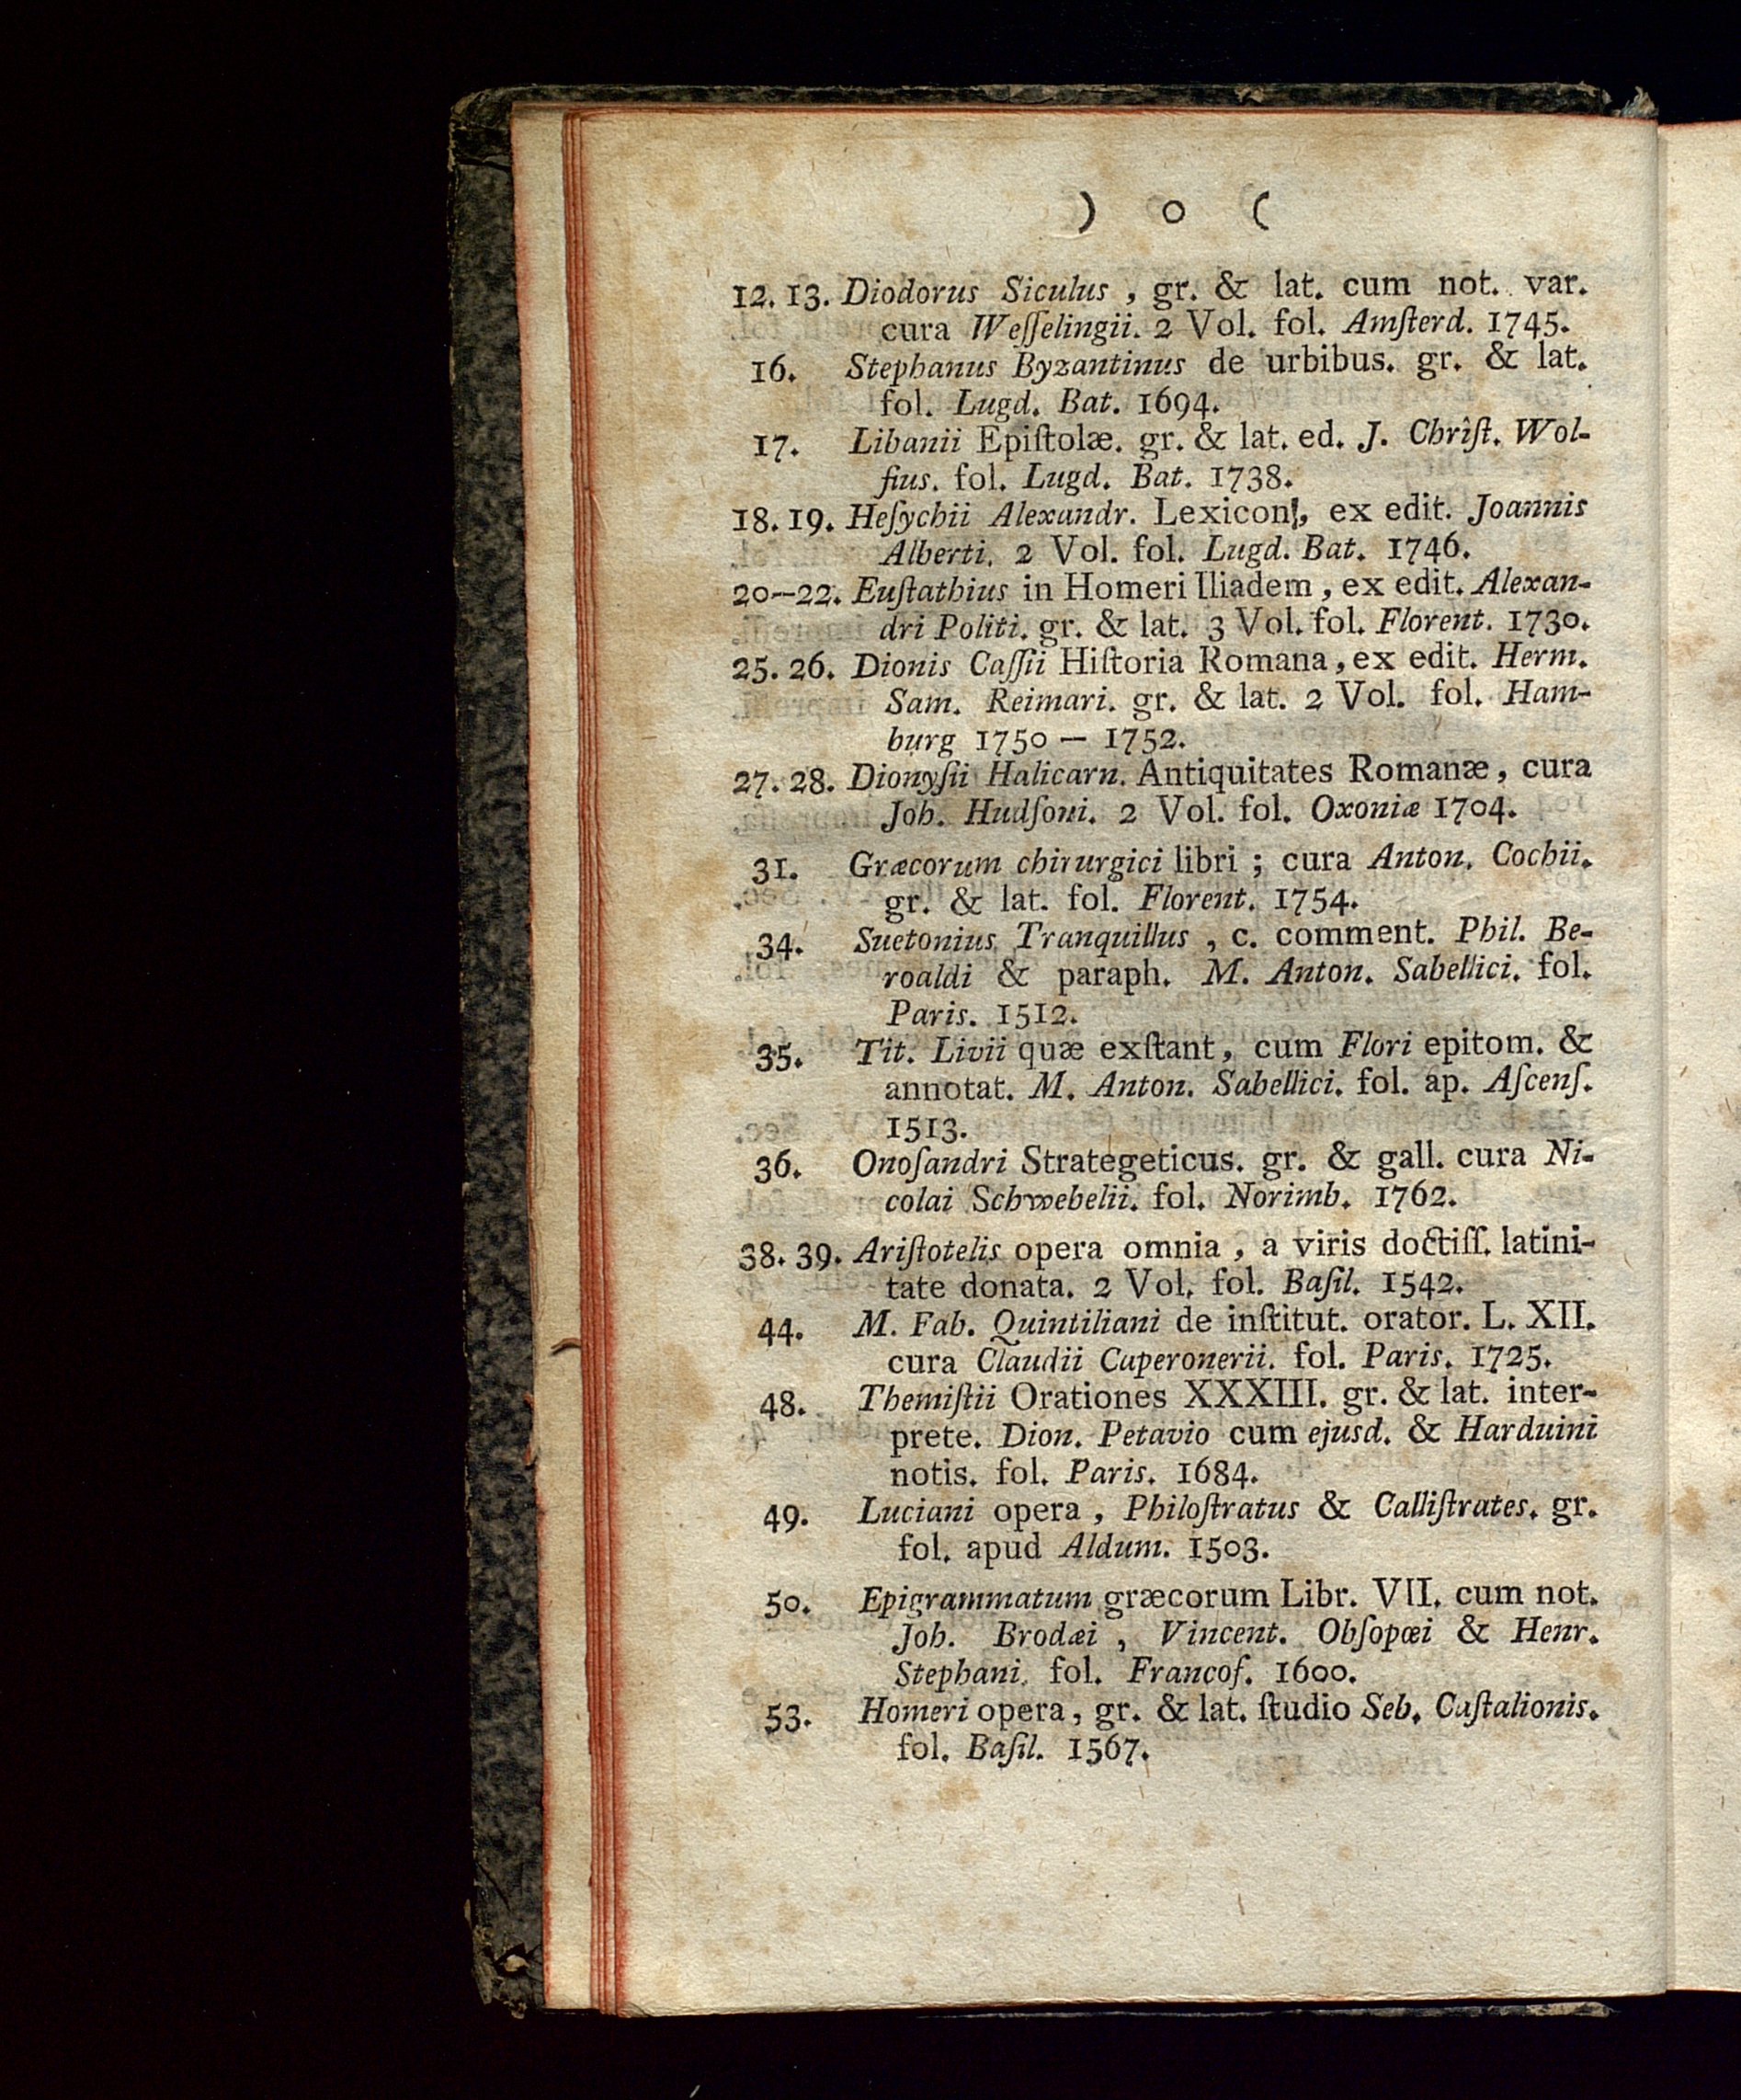 ) o (
12. 13. Diodorus Siculus , gr. & lat. cum not. var.
cura Weſſelingii. 2 Vol. fol. Amſterd. 1745.
16. Stephanus Byzantinus de urbibus. gr. & lat.
fol. Lugd. Bat. 1694.
17. Libanii Epiſtolæ. gr. & lat. ed. J. Chriſt. Wol-
fius. fol. Lugd. Bat. 1738.
18. 19. Heſychii Alexandr. Lexicon, ex edit. Joannis
Alberti. 2 Vol. fol. Lugd. Bat. 1746.
20—22. Euſtathius in Homeri Iliadem , ex edit. Alexan-
dri Politi. gr. & lat. 3 Vol. fol. Florent. 1730.
25. 26. Dionis Caſſii Hiſtoria Romana , ex edit. Herm.
Sam. Reimari. gr. & lat. 2 Vol. fol. Ham-
burg 1750 — 1752.
27. 28. Dionyſii Halicarn. Antiquitates Romanæ, cura
Joh. Hudſoni. 2 Vol. fol. Oxoniæ 1704.
31. Græcorum chirurgici libri ; cura Anton. Cochii.
gr. & lat. fol. Florent. 1754.
34. Suetonius Tranquillus , c. comment. Phil. Be-
roaldi & paraph. M. Anton. Sabellici. fol.
Paris. 1512.
35. Tit. Livii quæ exſtant, cum Flori epitom. &
annotat. M. Anton. Sabellici. fol. ap. Aſcenſ.
1513.
36. Onoſandri Strategeticus. gr. & gall. cura Ni-
colai Schwebelii. fol. Norimb. 1762.
38. 39. Ariſtotelis opera omnia , a viris doctiſſ. latini-
tate donata. 2 Vol. fol. Baſil. 1542.
44. M. Fab. Quintiliani de inſtitut. orator. L. XII.
cura Claudii Caperonerii. fol. Paris. 1725.
48. Themiſtii Orationes XXXIII. gr. & lat. inter-
prete. Dion. Petavio cum ejusd. & Harduini
notis. fol. Paris. 1684.
49. Luciani opera , Philoſtratus & Calliſtrates. gr.
fol. apud Aldum. 1503.
50. Epigrammatum græcorum Libr. VII. cum not.
Joh. Brodæi , Vincent. Obſopœi & Henr.
Stephani. fol. Francof. 1600.
53. Homeri opera , gr. & lat. ſtudio Seb. Caſtalionis.
fol. Baſil. 1567.